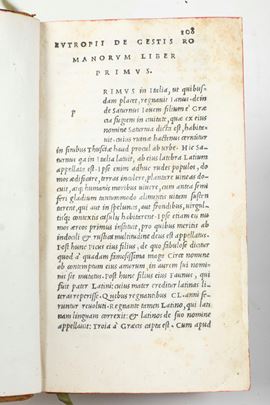 108
EVTROPII DE GESTIS RO
MANORVM LIBER
PRIMVS.
P RIMVS in Italia, ut quibuſ-
dam placet, regnauit Ianus: dein
de Saturnus Iouem filium è Græ
cia fugiens in ciuitate, quæ ex eius
nomine Saturnia dicta est, habita-
uit: cuius ruinæ hactenus cernūtur
in finibus Thuſciæ haud procul ab urbe. Hic Sa-
turnus qa in Italia latuit, ab eius latebra Latium
appellata est. Ipſe enim adhuc rudes populos, do
mos ædificare, terras incolere, plantare uineas do-
cuit, atq; humanis moribus uiuere, cum antea ſemi
feri glandium tantummodo alimentis uitam ſuſten
tarent, & aut in ſpeluncis, aut frondibus, uirgul-
tiſq; contextis caſulis habitarent. Ipſe etiam eis nu
mos æreos primus instituit, pro quibus meritis ab
indocili & rusticana multitudine deus est appellatus.
Post hunc Picus eius filius, de quo fabuloſe dicitur
quod à quadam famoſiſſima maga Circe nomine
ob contemptum eius amorum, in auem ſui nomi-
nis ſit mutatus. Post hunc filius eius Faunus, qui
fuit pater Latini: cuius mater creditur latinas lit
teras reperiſſe. Quibus regnantibus CL. anni fe-
runtur reuoluti. Regnante tamen Latino, qui lati
nam linguam correxit: & latinos de ſuo nomine
appellauit: Troia à Græcis capta est. Cum apud